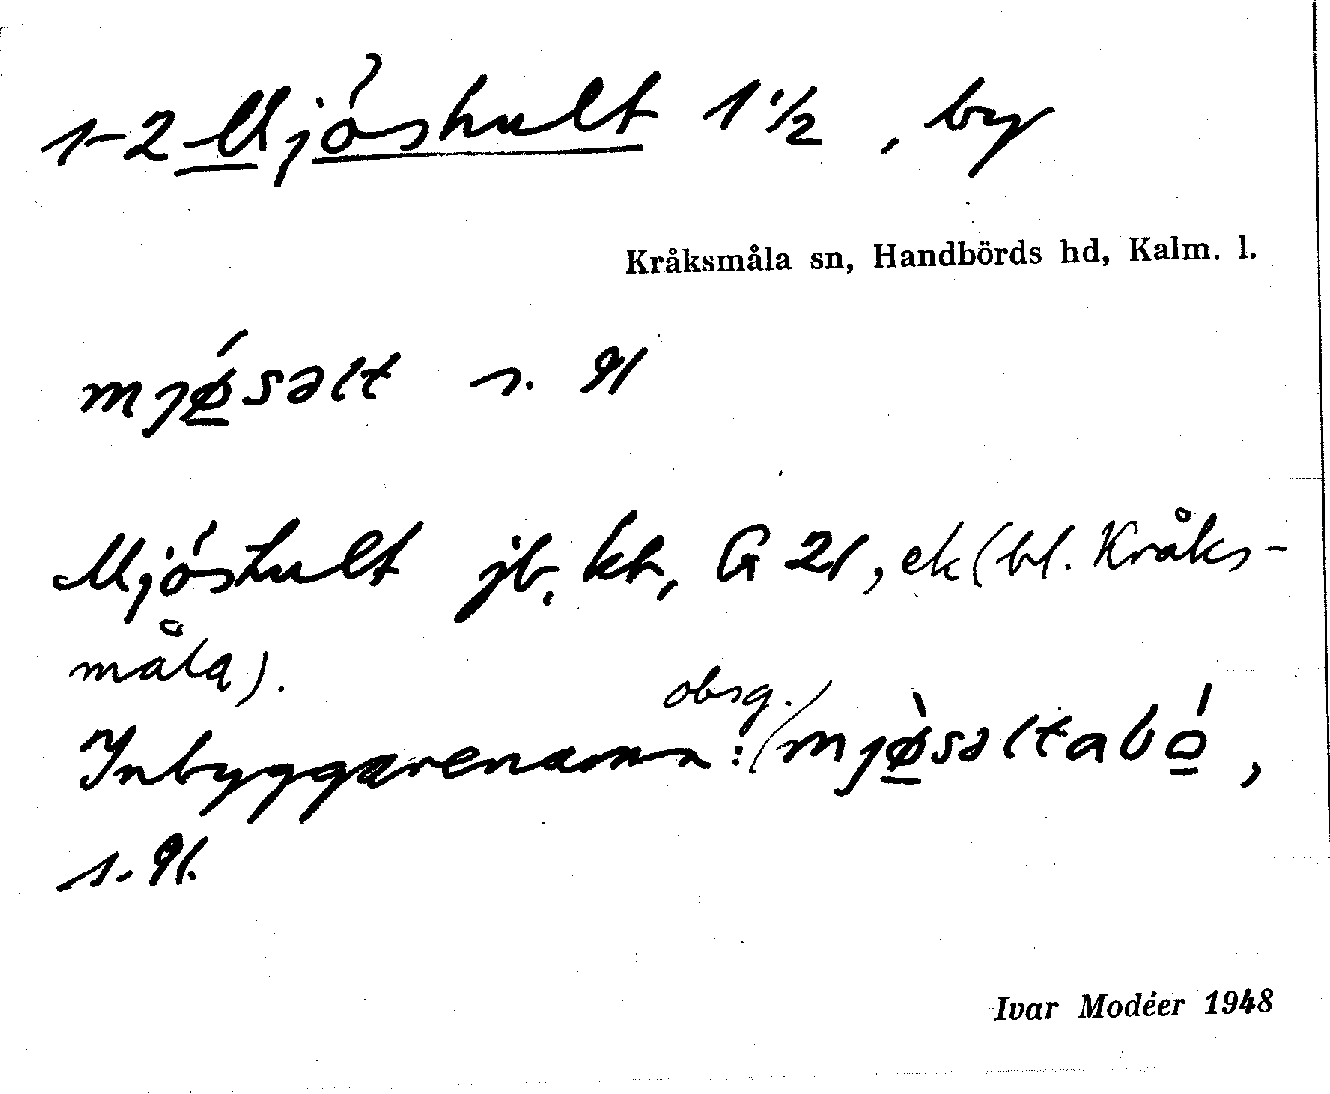 1-2 Mjöshult 1 1/2, by
Kråksmåla sn, Handbörds hd, Kalm. l.
mjǿsəlt s. st.
Mjöshult jb, kb, G 21, ek (bl. Kråks-
måla).
obsg.
Inbyggarenamn: mjø̀səltabó,
Ivar Modéer 1948